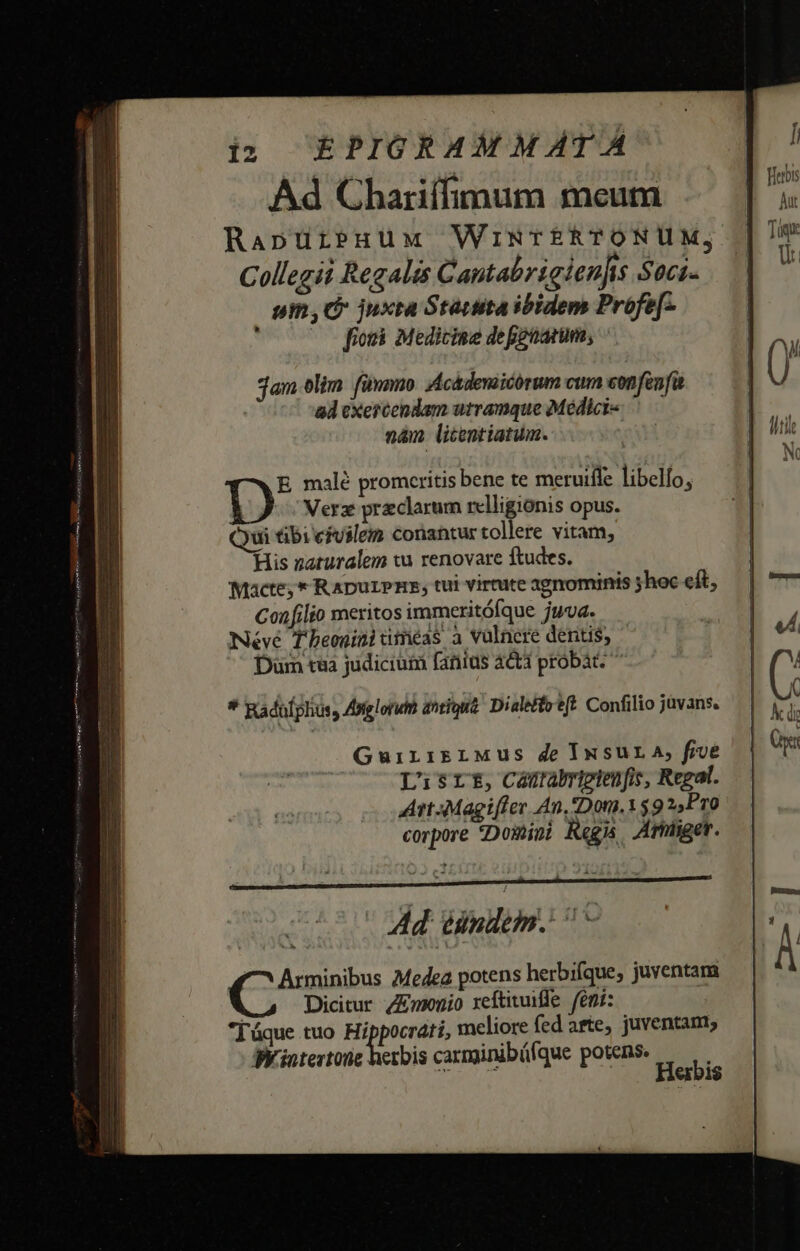 12 EPIGRAMMATA
Ad Chariſſimum meum
RADULPHUM WINTERTONUM,
Collegii Regalis Cantabrigienſis Soci-
um, & juxta Statuta ibidem Profeſ-
ſioni Medicinæ deſignatum,
Jam olim ſummo Academicorum cum conſenſu
ad exercendam utramque Medici-
nam licentiatum.
DE malè promeritis bene te meruiſſe libelſo,
Veræ præclarum relligionis opus.
Qui tibi civilem conantur tollere vitam,
His naturalem tu renovare ſtudes.
Macte, * RADULPHE, tui virtute agnominis; hoc eſt,
Conſilio meritos immeritóſque juva.
Névé Theonini timeas à vulnere dentis,
Dum tua judicium ſanius acta probat.
* Radulphus, Anglorum antiquâ Dialecto eſt Conſilio juvans.
GUILIELMUS de INSULA, ſive
L'ISLE, Cantabrigienſis, Regal.
Art. Magiſter An. Dom. 1592, Pro
corpore Domini Regis Armiger.
Ad eundem.
CArminibus Medea potens herbiſque, juventam
Dicitur Æmonio reſtituiſſe ſeni:
Túque tuo Hippocrati, meliore ſed arte, juventam,
Wintertone herbis carminibúſque potens.
Herbis
Herbis
Aut
Túque
Ut
Utile